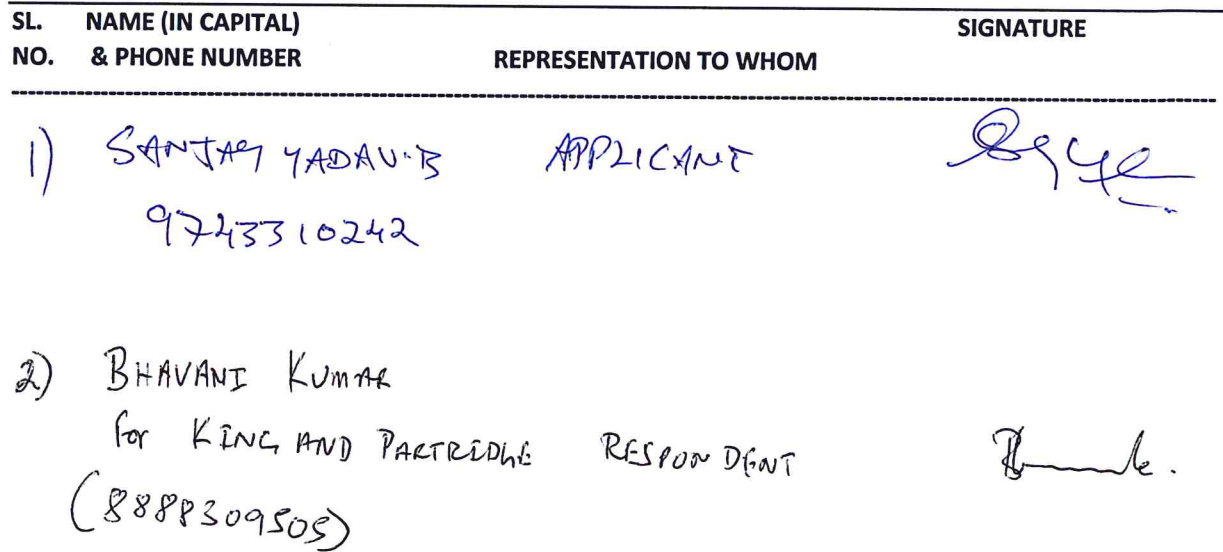 SL. NAME (IN CAPITAL) SIGNATURE
NO. & PHONE NUMBER REPRESENTATION TO WHOM
1) SANJAY YADAV.B APPLICANT
9743310242
2) BHAVANI KUMAR
for KING AND PARTRIDGE RESPONDENT
(8888309505)